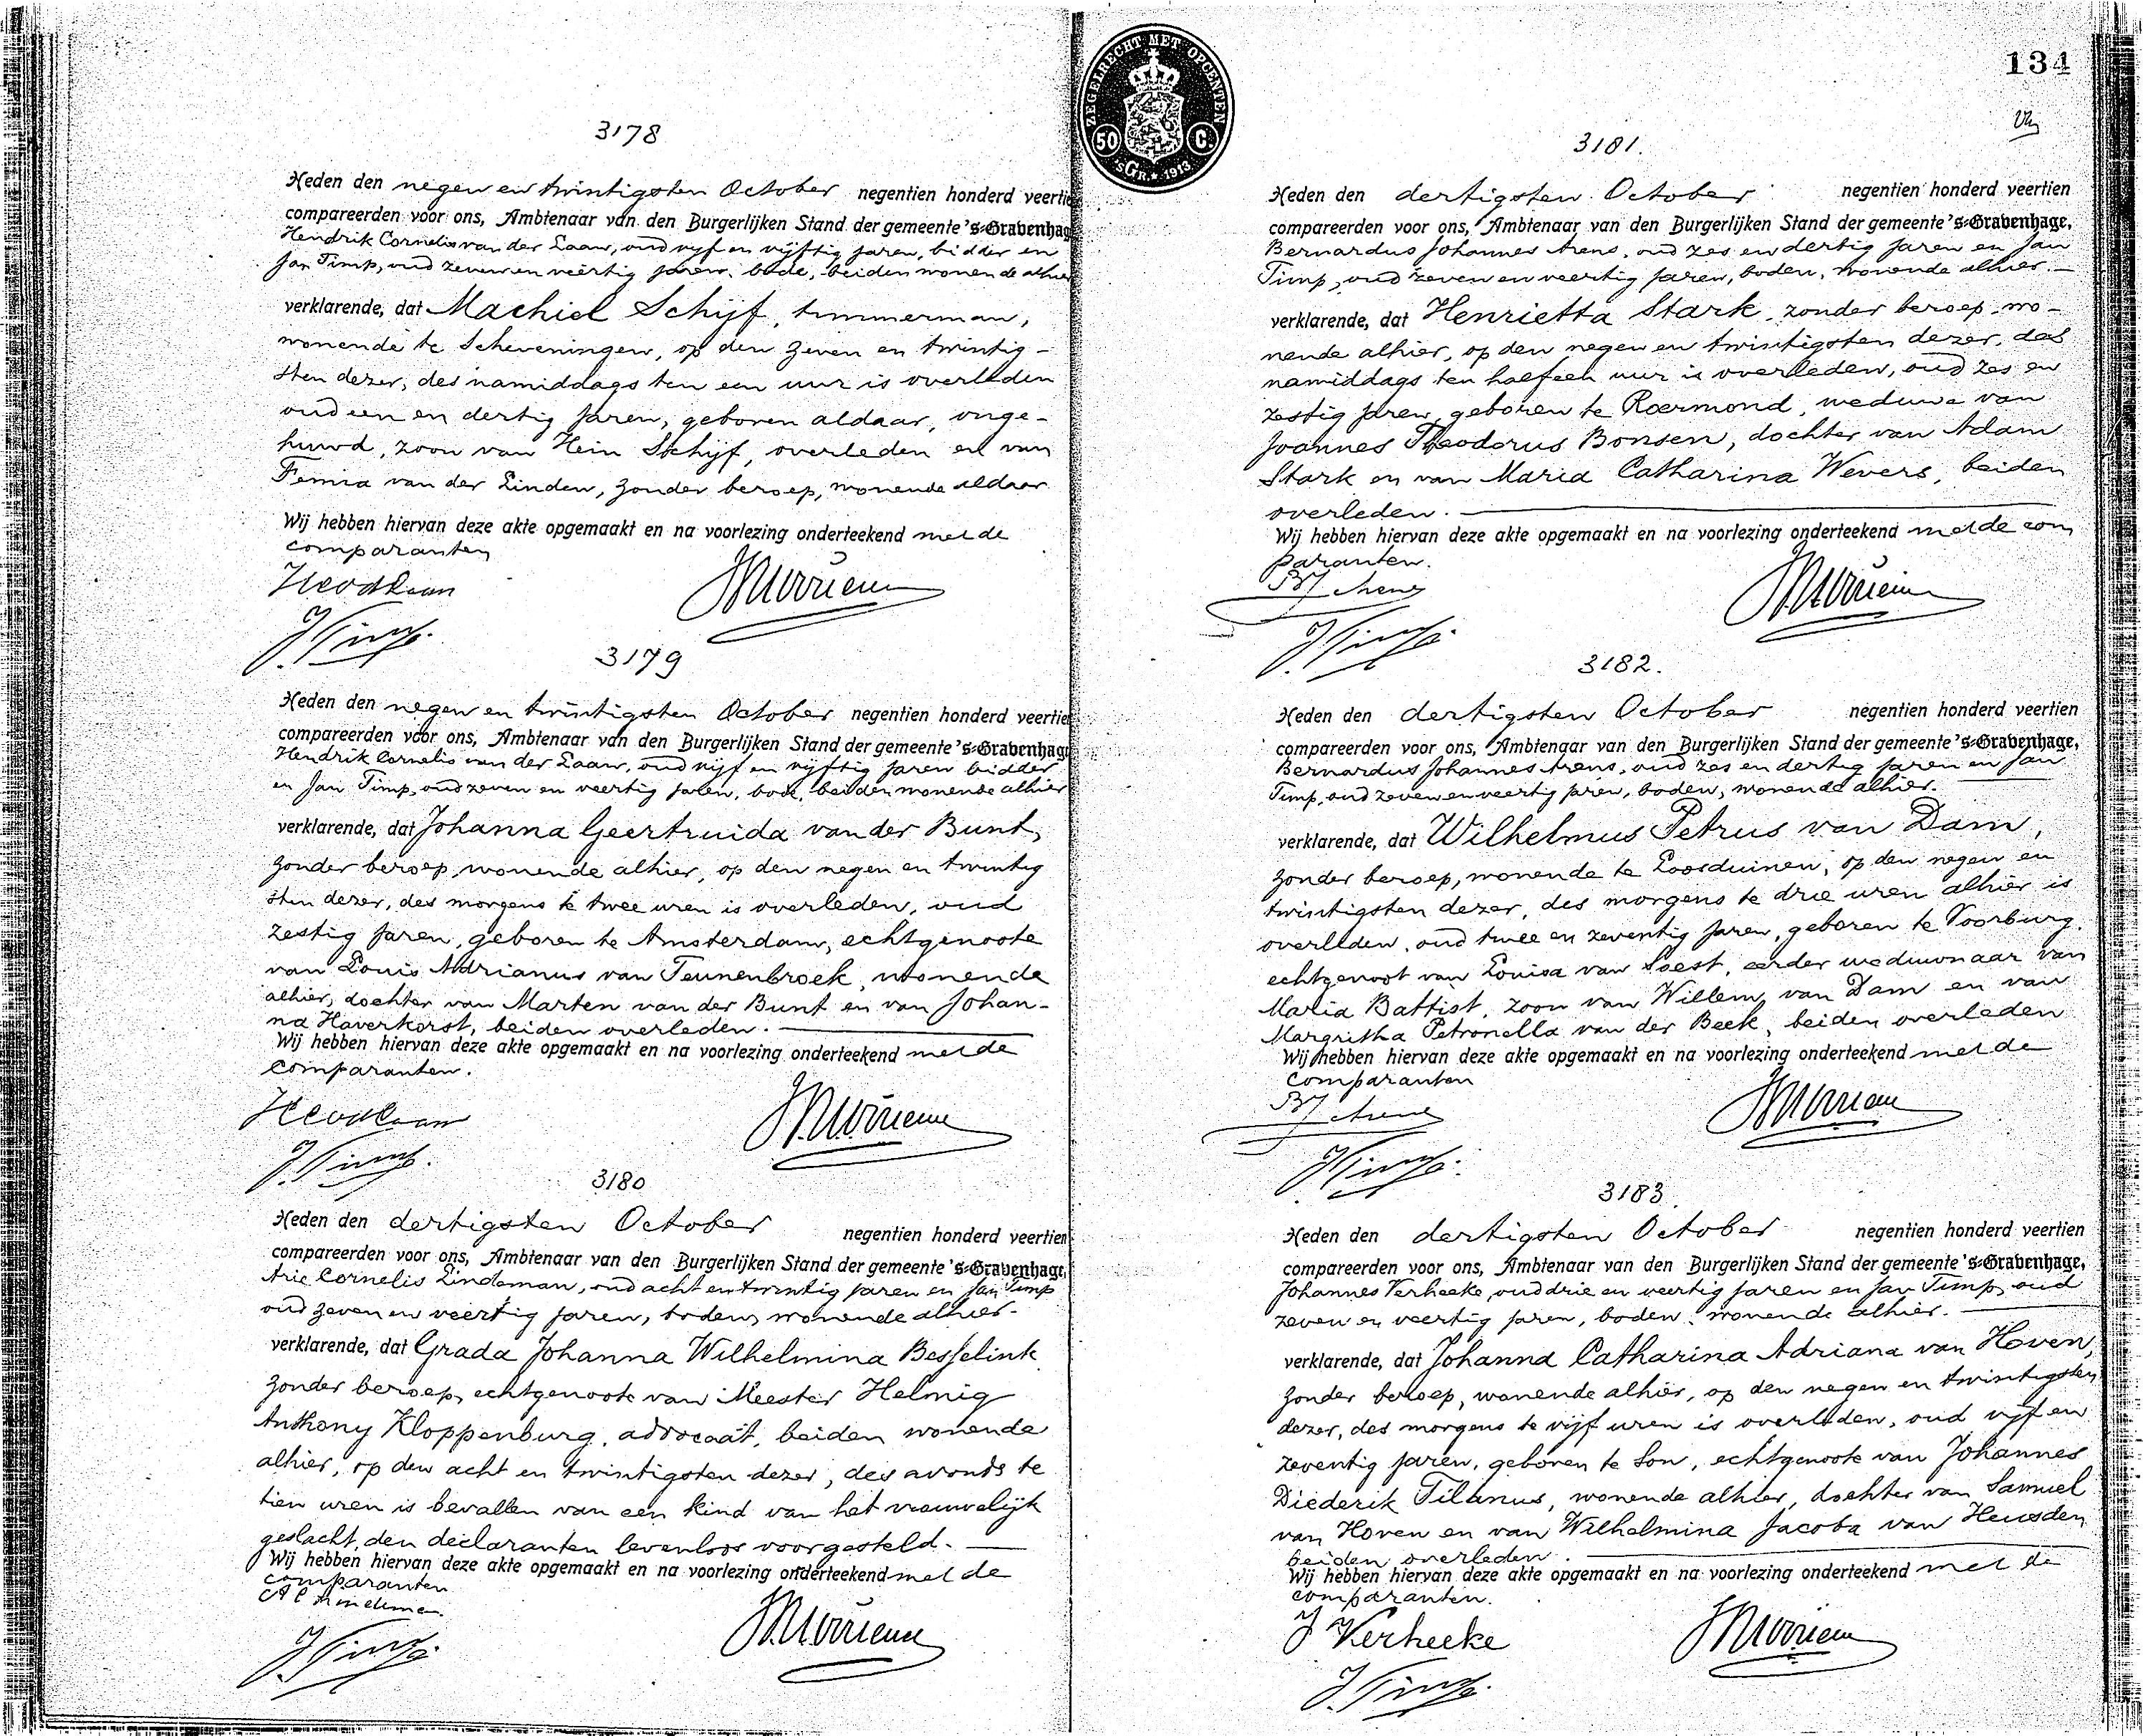 3178
Heden den negen en twintigsten October negentien honderd veertien
compareerden voor ons, Ambtenaar van den Burgerlijken Stand der gemeente 's-Gravenhage
Hendrik Cornelis van der Laan, oud vijf en vijftig jaren, bidder en
Jan Timp, oud zeven en veertig jaren, bode, beiden wonende alhier
verklarende, dat Machiel Schijf, timmerman,
wonende te Scheveningen, op den zeven en twintig-
sten dezer, des namiddags ten een uur is overleden
oud een en dertig jaren, geboren aldaar, onge-
huwd, zoon van Hein Schijf, overleden en van
Femia van der Linden, zonder beroep, wonende aldaar
Wij hebben hiervan deze akte opgemaakt en na voorlezing onderteekend met de
comparanten
HCvdLaan
J Timp.
3179
Heden den negen en twintigsten October negentien honderd veertien
compareerden voor ons, Ambtenaar van den Burgerlijken Stand der gemeente 's-Gravenhage
Hendrik Cornelis van der Laan, oud vijf en vijftig jaren bidder
en Jan Timp, oud zeven en veertig jaren, bode, beiden wonende alhier
verklarende, dat Johanna Geertruida van der Bunt,
zonder beroep, wonende alhier, op den negen en twintig
sten dezer, des morgens te twee uren is overleden, oud
zestig jaren, geboren te Amsterdam, echtgenoote
van Louis Adrianus van Teunenbroek, wonende
alhier, dochter van Marten van der Bunt en van Johan-
na Haverkorst, beiden overleden.
Wij hebben hiervan deze akte opgemaakt en na voorlezing onderteekend met de
comparanten.
HCvdLaan
J Timp.
3180
Heden den dertigsten October negentien honderd veertien
compareerden voor ons, Ambtenaar van den Burgerlijken Stand der gemeente 's-Gravenhage,
Arie Cornelis Lindeman, oud acht en twintig jaren en Jan Timp
oud zeven en veertig jaren, boden, wonende alhier.
verklarende, dat Grada Johanna Wilhelmina Besselink
zonder beroep, echtgenoote van Meester Helmig
Anthony Kloppenburg, advocaat, beiden wonende
alhier, op den acht en twintigsten dezer, des avonds te
tien uren is bevallen van een kind van het vrouwelijk
geslacht, den declaranten levenloos voorgesteld.
Wij hebben hiervan deze akte opgemaakt en na voorlezing onderteekend met de
comparanten
J Timp.
ZEGELRECHT MET OPCENTEN
50 C.
'sGR. 1913
134
3181.
Heden den dertigsten October negentien honderd veertien
compareerden voor ons, Ambtenaar van den Burgerlijken Stand der gemeente 's-Gravenhage,
Bernardus Johannes Arens, oud zes en dertig jaren en Jan
Timp, oud zeven en veertig jaren, boden, wonende alhier.
verklarende, dat Henrietta Stark, zonder beroep, wo-
nende alhier, op den negen en twintigsten dezer, des
namiddags ten half een uur is overleden, oud zes en
zestig jaren, geboren te Roermond, weduwe van
Joannes Theodorus Bonsen, dochter van Adam
Stark en van Maria Catharina Wevers, beiden
overleden.
Wij hebben hiervan deze akte opgemaakt en na voorlezing onderteekend met de com
paranten.
BJ Arens
J Timp.
3182.
Heden den dertigsten October negentien honderd veertien
compareerden voor ons, Ambtenaar van den Burgerlijken Stand der gemeente 's-Gravenhage,
Bernardus Johannes Arens, oud zes en dertig jaren en Jan
Timp, oud zeven en veertig jaren, boden, wonende alhier.
verklarende, dat Wilhelmus Petrus van Dam,
zonder beroep, wonende te Loosduinen, op den negen en
twintigsten dezer, des morgens te drie uren alhier is
overleden, oud twee en zeventig jaren, geboren te Voorburg,
echtgenoot van Louisa van Soest, eerder weduwnaar van
Maria Battist, zoon van Willem van Dam en van
Margritha Petronella van der Beek, beiden overleden
Wij hebben hiervan deze akte opgemaakt en na voorlezing onderteekend met de
comparanten
BJ Arens
J Timp.
3183.
Heden den dertigsten October negentien honderd veertien
compareerden voor ons, Ambtenaar van den Burgerlijken Stand der gemeente 's-Gravenhage,
Johannes Verheeke, oud drie en veertig jaren en Jan Timp, oud
zeven en veertig jaren, boden, wonende alhier.
verklarende, dat Johanna Catharina Adriana van Hoven,
zonder beroep, wonende alhier, op den negen en twintigsten
dezer, des morgens te vijf uren is overleden, oud vijf en
zeventig jaren, geboren te Son, echtgenoote van Johannes
Diederik Tilanus, wonende alhier, dochter van Samuel
van Hoven en van Wilhelmina Jacoba van Heusden
beiden overleden.
Wij hebben hiervan deze akte opgemaakt en na voorlezing onderteekend met de
comparanten.
J Verheeke
J Timp.